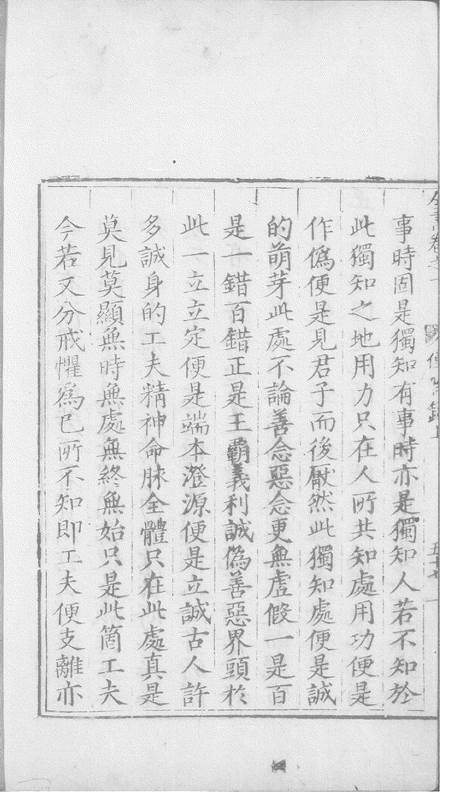 事時固是獨知有事時亦是獨知人若不知於
此獨知之地用力只在人所共知處用功便是
作僞便是見君子而後厭然此獨知處便是誠
的萌芽此處不論善念惡念更無虛假一是百
是一錯百錯正是王霸義利誠僞善惡界頭於
此一立立定便是端本澄源便是立誠古人許
多誠身的工夫精神命脉全體只在此處真是
莫見莫顯無時無處無終無始只是此箇工夫
今若又分戒懼爲己所不知即工夫便支離亦